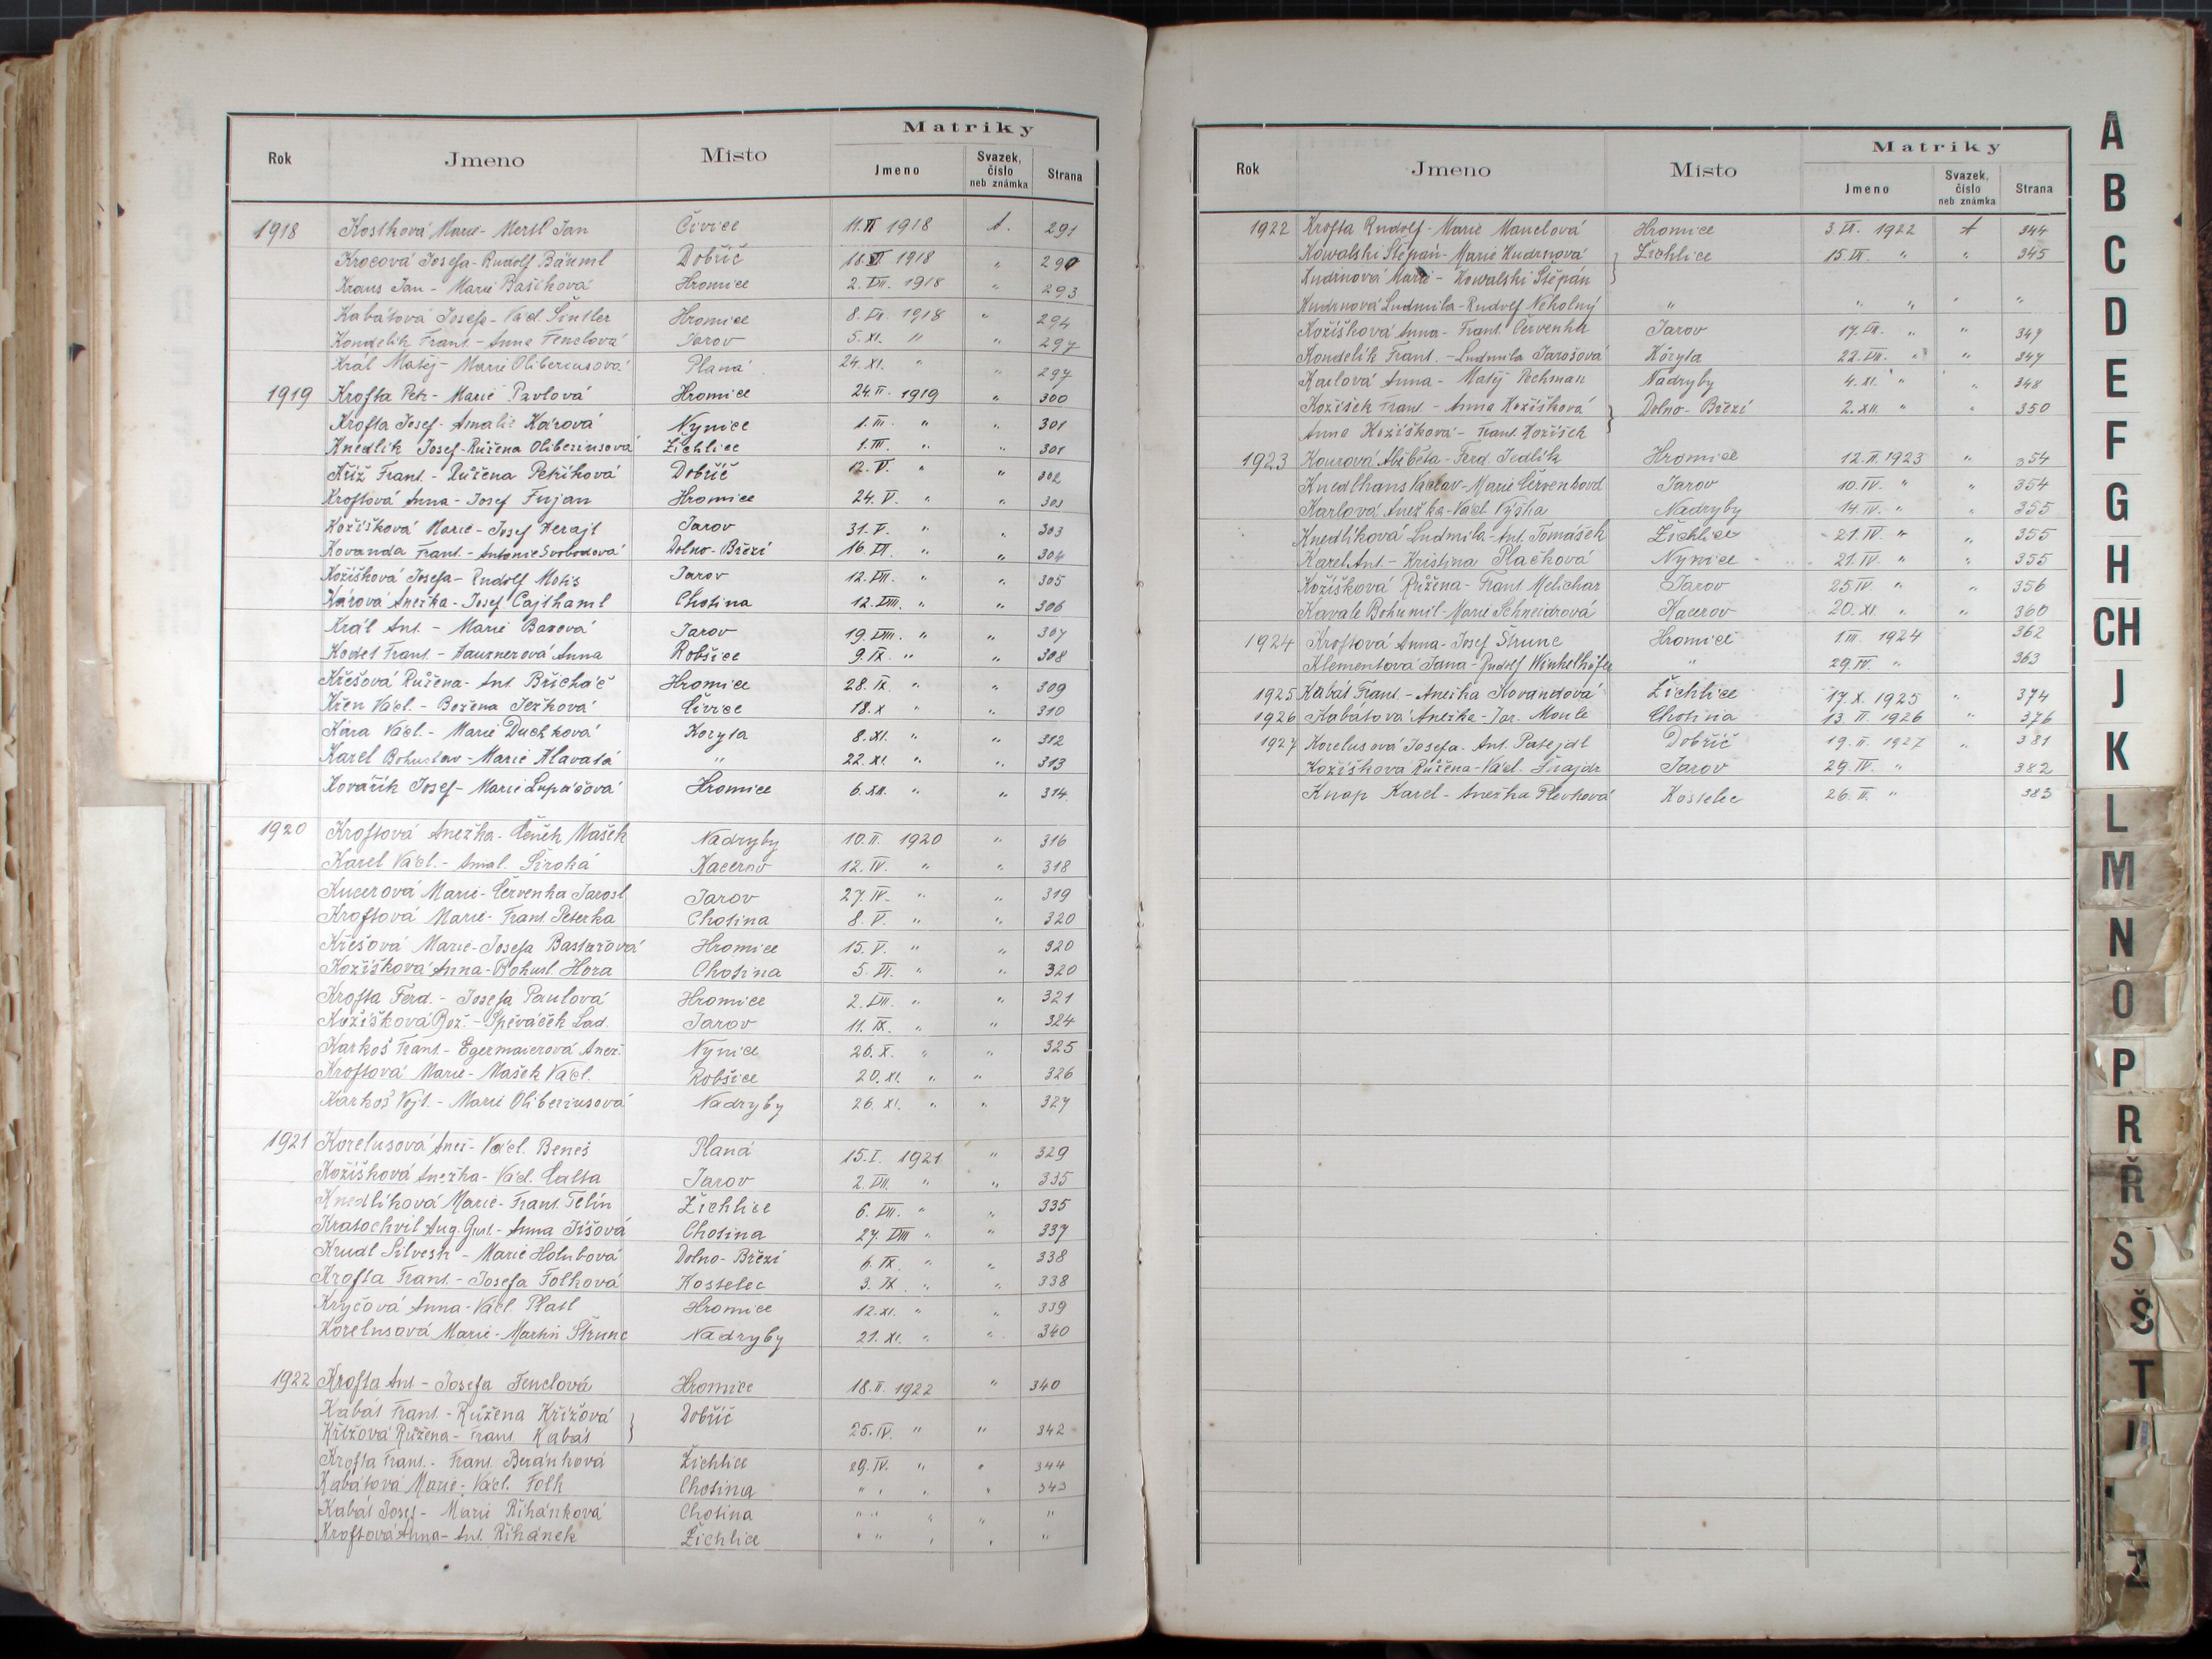 Matriky
Rok Jmeno Misto Jmeno Svazek, číslo neb známka Strana
1918 Kostková Marie - Mertl Jan Čivice 11. VI 1918 A. 291
Krocová Josefa - Rudolf Bäuml Dobříč 18. VI 1918 " 290
Kraus Jan - Marie Bašíková Hromice 2. VII. 1918 " 293
Kabátová Josefa - Václ. Šintler Hromice 8. VII. 1918 " 294
Kondelík Frant. - Anna Fenclová Jarov 5. XI. " " 297
Král Matěj - Marie Oliberiusová Planá 24. XI. " " 297
1919 Krofta Petr - Marie Pavlová Hromice 24. II. 1919 " 300
Krofta Josef - Amalie Kárová Nynice 1. III. " " 301
Knedlík Josef - Růžena Oliberiusová Žichlice 1. III. " " 301
Kříž Frant. - Růžena Petříková Dobříč 12. V. " " 302
Kroftová Anna - Josef Fujan Hromice 24. V. " " 303
Kožíšková Marie - Josef Herajt Jarov 31. V. " " 303
Kovanda Frant. - Antonie Svobodová Dolno-Březí 16. VI. " " 304
Kožíšková Josefa - Rudolf Motis Jarov 12. VII. " " 305
Kárová Anežka - Josef Cajthaml Chotina 12. VIII. " " 306
Král Ant. - Marie Baxová Jarov 19. VIII. " " 307
Kodet Frant. - Hauznerová Anna Robšice 9. IX. " " 308
Křešová Růžena - Ant. Břicháč Hromice 28. IX. " " 309
Křen Václ. - Božena Ježková Čivice 18. X " " 310
Kára Václ. - Marie Duchková Koryta 8. XI. " " 312
Karel Bohuslav - Marie Hlavatá " 22. XI. " " 313
Kovářík Josef - Marie Lupáčová Hromice 6. XII. " " 314.
1920 Kroftová Anežka - Čeněk Mašek Nadryby 10. II. 1920 " 316
Karel Václ. - Amal. Široká Kacerov 12. IV. " " 318
Kucerová Marie - Červenka Jarosl Jarov 27. IV. " " 319
Kroftová Marie - Frant. Peterka Chotina 8. V. " " 320
Křešová Marie - Josefa Bastařová Hromice 15. V. " " 320
Kožíšková Anna - Bohusl. Hora Chotina 5. VI. " " 320
Krofta Ferd. - Josefa Paulová Hromice 2. VII. " " 321
Kožíšková Bož. - Špěváček Lad. Jarov 11. IX. " " 324
Karkoš Frant. - Egermaierová Anež. Nynice 26. X. " " 325
Kroftová Marie - Mašek Václ. Robšice 20. XI. " " 326
Karkoš Vojt. - Marie Oliberiusová Nadryby 26. XI. " " 327
1921 Korelusová Anež - Václ. Beneš Planá 15. I. 1921 " 329
Kožíšková Anežka - Václ. Calta Jarov 2. VII. " " 335
Knedlíková Marie - Frant. Telín Žichlice 6. VII. " " 335
Kratochvil Aug. Gust. - Anna Jíšová Chotina 27. VIII " " 337
Krudl Silvestr - Marie Holubová Dolno-Březí 6. IX. " " 338
Krofta Frant. - Josefa Folková Kostelec 3. IX. " " 338
Kryčová Anna - Václ. Platl Hromice 12. XI. " " 339
Korelusová Marie - Martin Štrunc Nadryby 21. XI. " " 340
1922 Krofta Ant - Josefa Fenclová Hromice 18. II. 1922 " 340
Kabát Frant. - Růžena Křížová } Dobříč
Křížová Růžena - Frant. Kabát 25. IV. " " 342
Krofta Frant. - Frant. Beránková Žichlice 29. IV. " " 344
Kabátová Marie - Václ. Folk Chotina " " " 343
Kabát Josef - Marie Řihánková Chotina " " " "
Kroftová Anna - Ant. Řihánek Žichlice " " " "
Matriky
Rok Jmeno Misto Jmeno Svazek, číslo neb známka Strana
1922 Krofta Rudolf - Marie Manclová Hromice 3. VI. 1922 A 344
Kowalski Štěpán - Marie Kudrnová } Žichlice 15. VII. " " 345
Kudrnová Marie - Kowalski Štěpán
Kudrnová Ludmila - Rudolf Neholný " " " " "
Kožíšková Anna - Frant. Červenka Jarov 17. VII. " " 347
Kondelík Frant. - Ludmila Jarošová Koryta 22. VII. " " 347
Karlová Anna - Matěj Pechman Nadryby 4. XI. " " 348
Kožíšek Frant. - Anna Kožíšková } Dolno-Březí 2. XII. " " 350
Anna Kožíšková - Frant. Kožíšek
1923 Kourová Alžběta - Ferd. Jedlík Hromice 12. II. 1923 " 354
Knedlhans Václav - Marie Červenková Jarov 10. IV. " " 354
Karlová Anežka - Václ. Výtha Nadryby 14. IV. " " 355
Knedlíková Ludmila - Ant. Tomášek Žichlice 21. IV. " " 355
Karel Ant. - Kristina Plačková Nynice 21. IV. " 355
Kožíšková Růžena - Frant. Melichar Jarov 25. IV. " " 356
Kavale Bohumil - Marie Schneidrová Kacerov 20. XI. " " 360
1924 Kroftová Anna - Josef Štrunc Hromice 1. III. 1924 362
Klementová Jana - Rudolf Winkelhöfer " 29. IV. " 363
1925 Kabát Frant. - Anežka Kovandová Žichlice 17. X. 1925 " 374
1926 Kabátová Anežka - Jar. Moule Chotina 13. II. 1926 " 376
1927 Korelusová Josefa - Ant. Patejdl Dobříč 19. II. 1927 " 381
Kožíšková Růžena - Václ. Šnajdr Jarov 29. IV. " 382
Knap Karel - Anežka Plevková Kostelec 26. II. " 383
A
B
C
D
E
F
G
H
CH
J
K
L
M
N
O
P
R
Ř
S
Š
T
Z